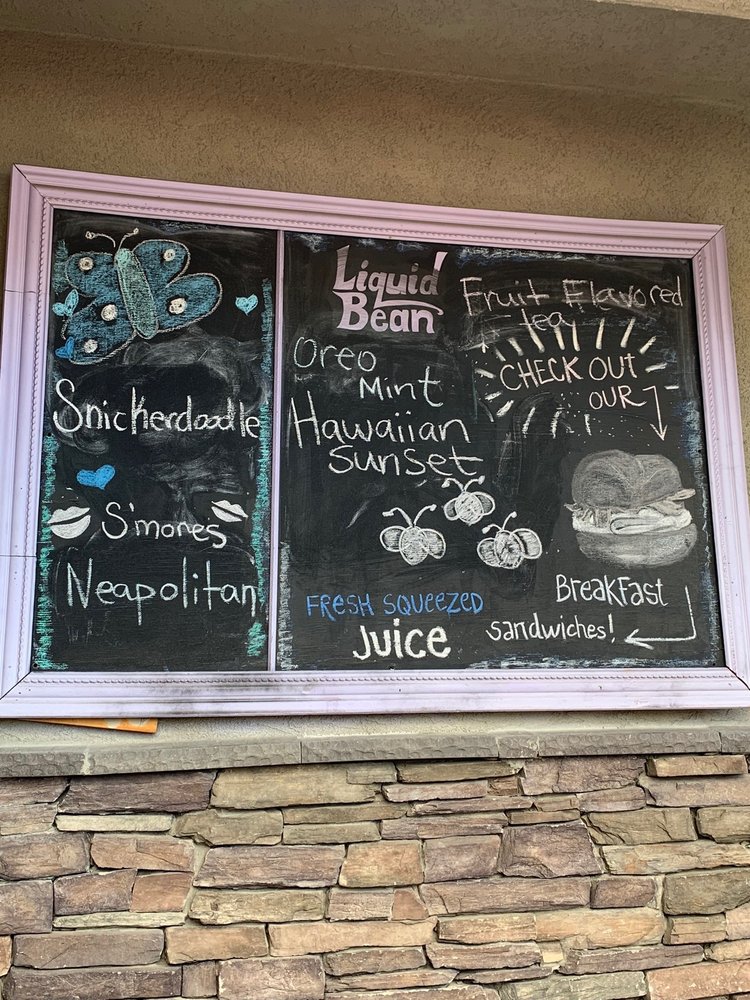 Snickerdoodle
S'mores
Neapolitan
Liquid
Bean
Oreo
Mint
Hawaiian
Sunset
FRESH SQUEEZED
Juice
Fruit Flavored
tea
CHECK OUT
OUR
BreakFast
sandwiches!